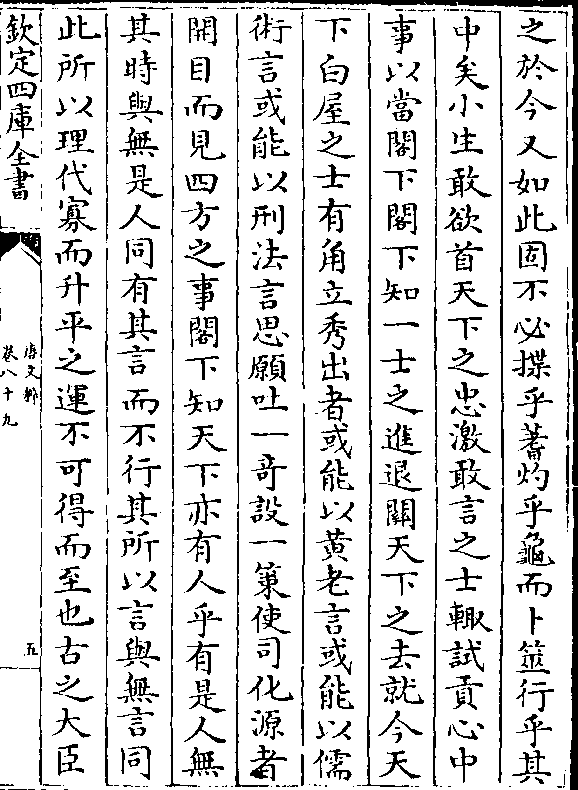 之於今又如此固不必揲乎蓍灼乎龜而卜筮行乎其
中矣小生敢欲首天下之忠激敢言之士輙試貢心中
事以當閣下閣下知一士之進退關天下之去就今天
下白屋之士有角立秀出者或能以黄老言或能以儒
術言或能以刑法言思願吐一竒設一策使司化源者
開目而見四方之事閣下知天下亦有人乎有是人無
其時與無是人同有其言而不行其所以言與無言同
此所以理代寡而升平之運不可得而至也古之大臣
欽定四庫全書
唐文粹
卷八十九
五